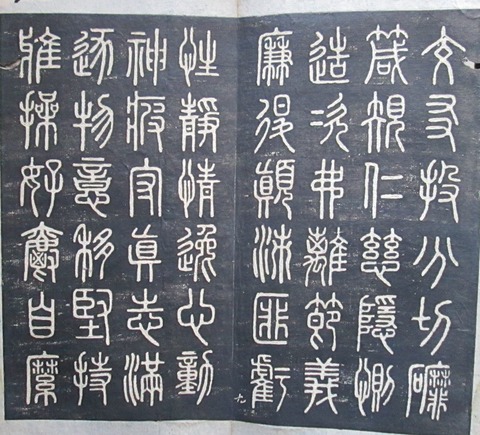 交友投分切磨
箴規仁慈隱惻
造次弗離節義
廉退顛沛匪虧
九
性靜情逸心動
神疲守真志滿
逐物意移堅持
雅操好爵自縻